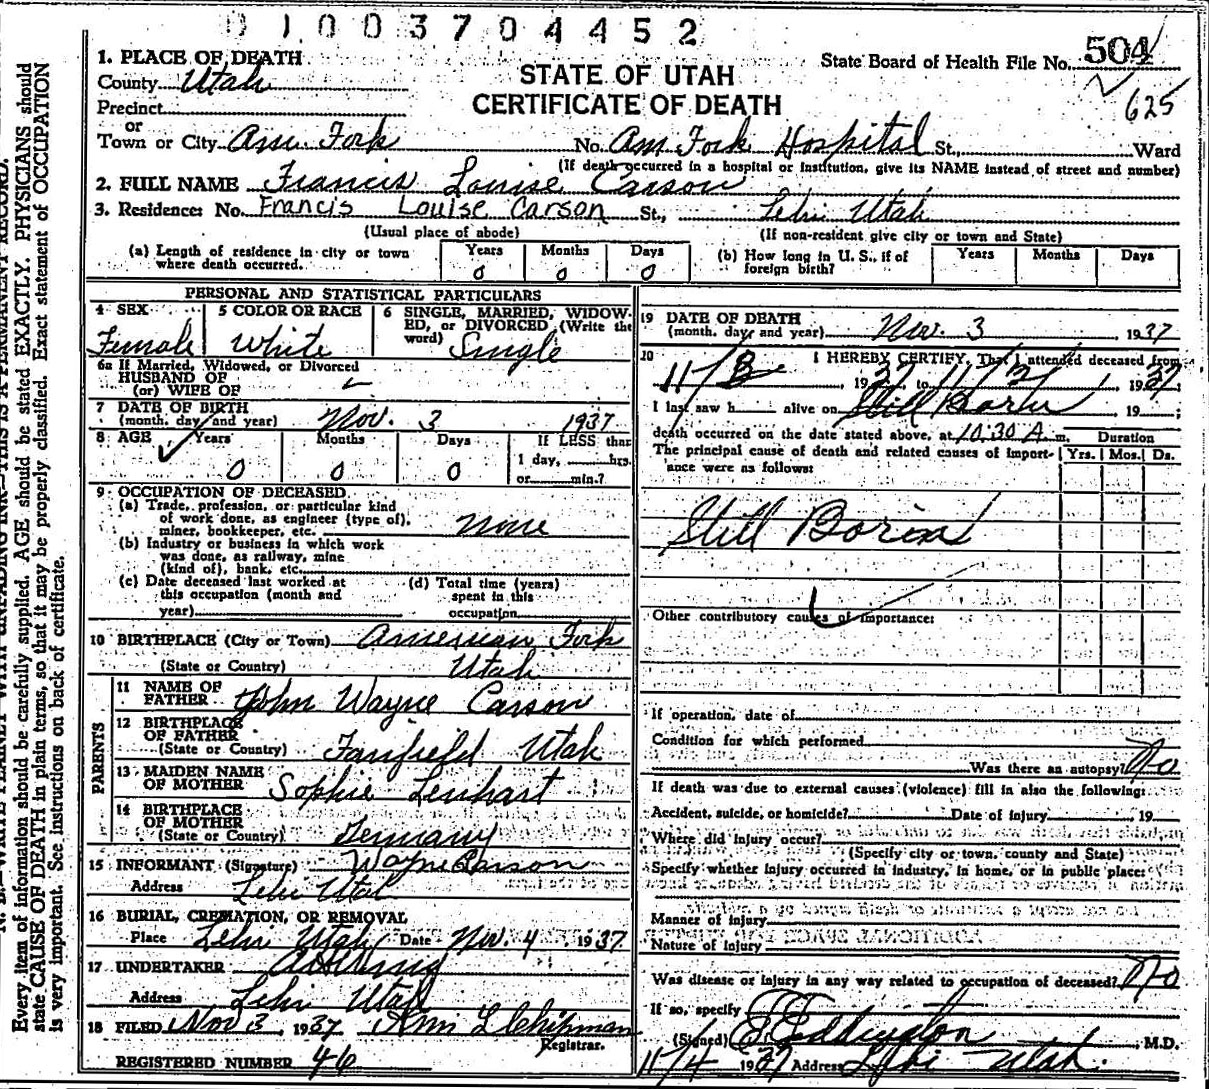 0 1 0 0 3 7 0 4 4 5 2
State Board of Health File No. 504
625
STATE OF UTAH
CERTIFICATE OF DEATH
1. PLACE OF DEATH
County Utah
Precinct
or
Town or City Am. Fork No. Am Fork Hospital St., Ward
(If death occurred in a hospital or institution, give its NAME instead of street and number)
2. FULL NAME Francis Louise Carson
3. Residence: No. Francis Louise Carson St., Lehi Utah
(Usual place of abode) (If non-resident give city or town and State)
(a) Length of residence in city or town where death occurred. Years 0 Months 0 Days 0
(b) How long in U. S., if of foreign birth? Years Months Days
PERSONAL AND STATISTICAL PARTICULARS
4 SEX Female
5 COLOR OR RACE White
6 SINGLE, MARRIED, WIDOW-
ED, or DIVORCED (Write the
word) Single
6a If Married, Widowed, or Divorced
HUSBAND OF
(or) WIFE OF
7 DATE OF BIRTH
(month, day and year) Nov. 3 1937
8 AGE Years 0 Months 0 Days 0 If LESS than
1 day, hrs.
or min.?
9 OCCUPATION OF DECEASED
(a) Trade, profession, or particular kind
of work done, as engineer (type of),
miner, bookkeeper, etc. None
(b) Industry or business in which work
was done, as railway, mine
(kind of), bank, etc.
(c) Date deceased last worked at
this occupation (month and
year)
(d) Total time (years)
spent in this
occupation
10 BIRTHPLACE (City or Town) American Fork
(State or Country) Utah
PARENTS
11 NAME OF
FATHER John Wayne Carson
12 BIRTHPLACE
OF FATHER
(State or Country) Fairfield Utah
13 MAIDEN NAME
OF MOTHER Sophie Lenhart
14 BIRTHPLACE
OF MOTHER
(State or Country) Germany
15 INFORMANT (Signature) Wayne Carson
Address Lehi Utah
16 BURIAL, CREMATION, OR REMOVAL
Place Lehi Utah Date Nov. 4 1937
17 UNDERTAKER
Address Lehi Utah
18 FILED Nov 3, 1937 Ann L Chipman
Registrar.
REGISTERED NUMBER 46
19 DATE OF DEATH
(month, day and year) Nov. 3 1937
20 I HEREBY CERTIFY, That I attended deceased from
11/3 1937, to 11/3, 1937;
I last saw h alive on Still Born 19 ;
death occurred on the date stated above, at 10:30 A. m.
The principal cause of death and related causes of import-
ance were as follows:
Duration
Yrs. Mos. Ds.
Still Born
Other contributory causes of importance:
If operation, date of
Condition for which performed
Was there an autopsy? No
If death was due to external causes (violence) fill in also the following:
Accident, suicide, or homicide? Date of injury 19
Where did injury occur?
(Specify city or town, county and State)
Specify whether injury occurred in industry, in home, or in public place:
Manner of injury
Nature of injury
Was disease or injury in any way related to occupation of deceased? No
If so, specify
(Signed) Eddington M.D.
11/4 1937 Address Lehi Utah.
N. B.—WRITE PLAINLY WITH UNFADING INK—THIS IS A PERMANENT RECORD.
Every item of information should be carefully supplied. AGE should be stated EXACTLY. PHYSICIANS should
state CAUSE OF DEATH in plain terms, so that it may be properly classified. Exact statement of OCCUPATION
is very important. See instructions on back of certificate.